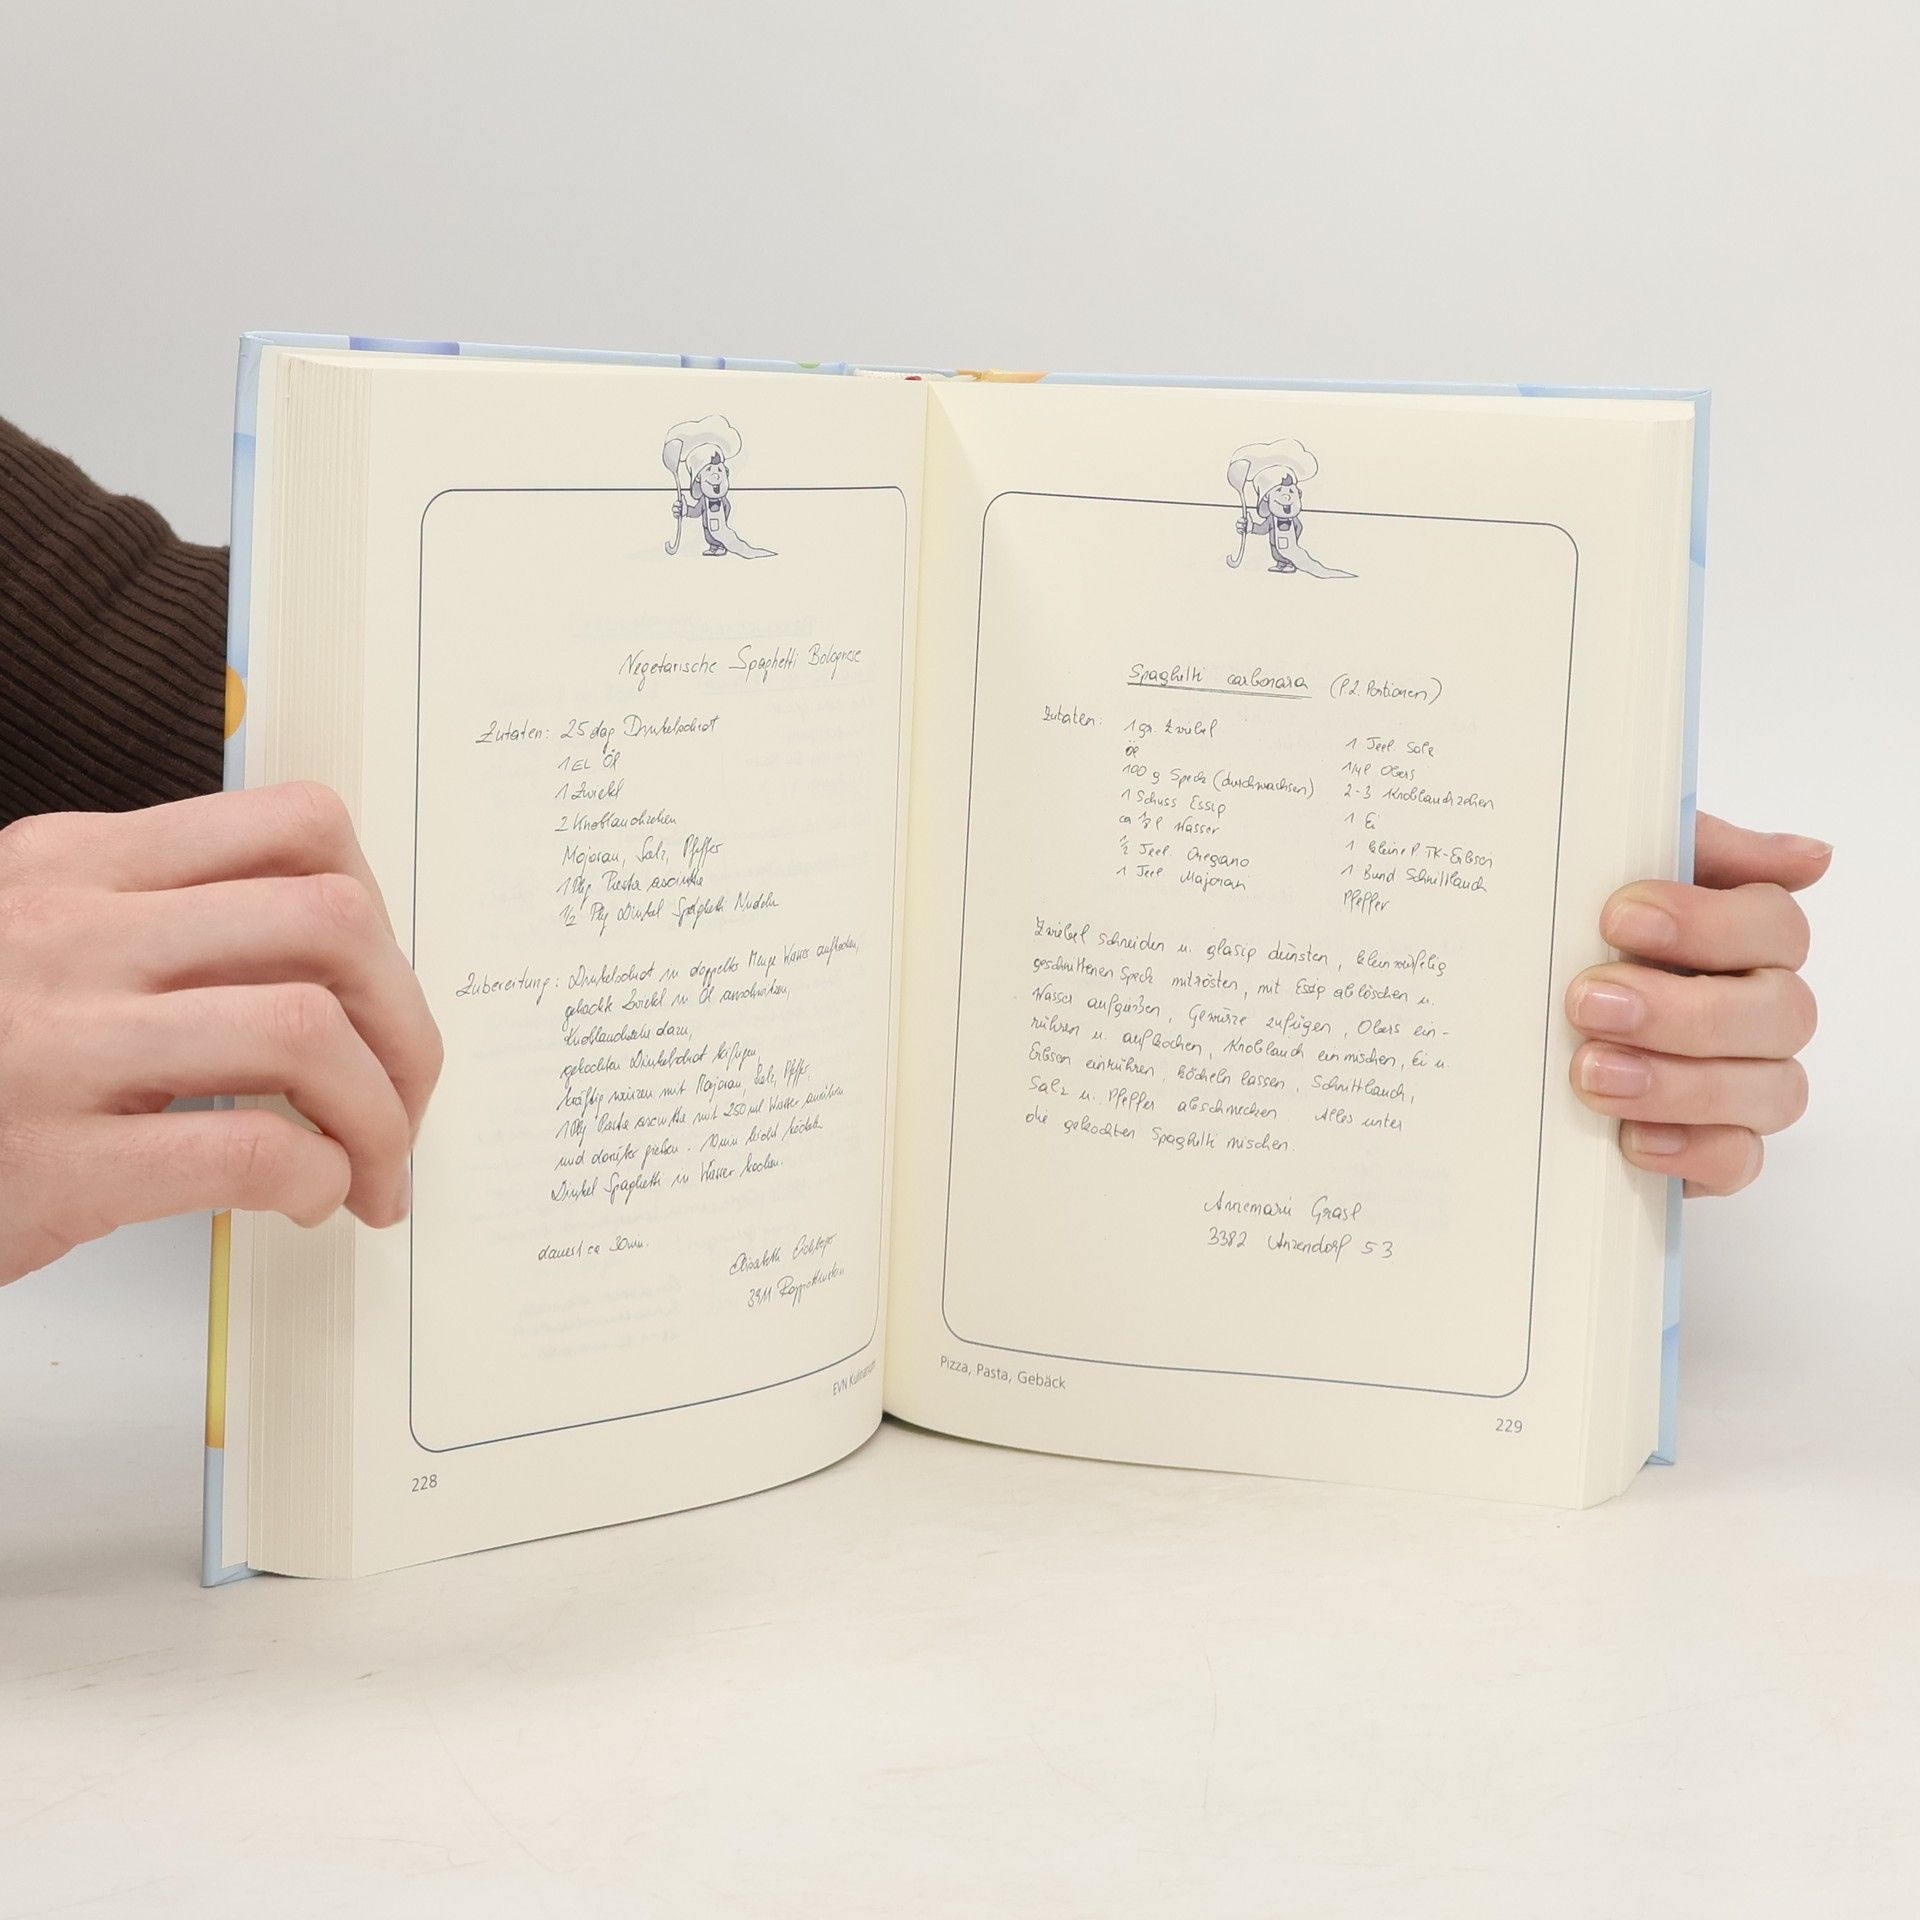 Vegetarische Spaghetti Bolognese
Zutaten: 25 dag Dinkelschrot
1 EL Öl
1 Zwiebel
2 Knoblauchzehen
Majoran, Salz, Pfeffer
1 Pkg Pasta asciutta
1/2 Pkg Dinkel Spaghetti Nudeln
Zubereitung: Dinkelschrot in doppelter Menge Wasser aufkochen,
gehackte Zwiebel in Öl anschwitzen,
Knoblauchzehe dazu,
gekochten Dinkelschrot beifügen,
kräftig würzen mit Majoran, Salz, Pfeffer,
1 Pkg Pasta asciutta mit 250 ml Wasser anrühren
und darüber gießen. 10 min leicht köcheln
Dinkel Spaghetti in Wasser kochen.
dauert ca 30 min.
Elisabeth
3911 Rappottenstein
EVN Kulinarium
228
Spaghetti carbonara (f. 2 Portionen)
Zutaten: 1 gr. Zwiebel
Öl
100 g Speck (durchwachsen)
1 Schuss Essig
ca 1/8 l Wasser
1/2 Teel. Oregano
1 Teel Majoran
1 Teel Salz
1/4 l Obers
2-3 Knoblauchzehen
1 Ei
1 kleine P. TK-Erbsen
1 Bund Schnittlauch
Pfeffer
Zwiebel schneiden u. glasig dünsten, kleinwürfelig
geschnittenen Speck mitrösten, mit Essig ablöschen u.
Wasser aufgießen, Gewürze zufügen, Obers ein-
rühren u. aufkochen, Knoblauch einmischen, Ei u.
Erbsen einrühren, köcheln lassen, Schnittlauch,
Salz u. Pfeffer abschmecken Alles unter
die gekochten Spaghetti mischen.
Annemarie Grasl
3382 Anzendorf 53
Pizza, Pasta, Gebäck
229